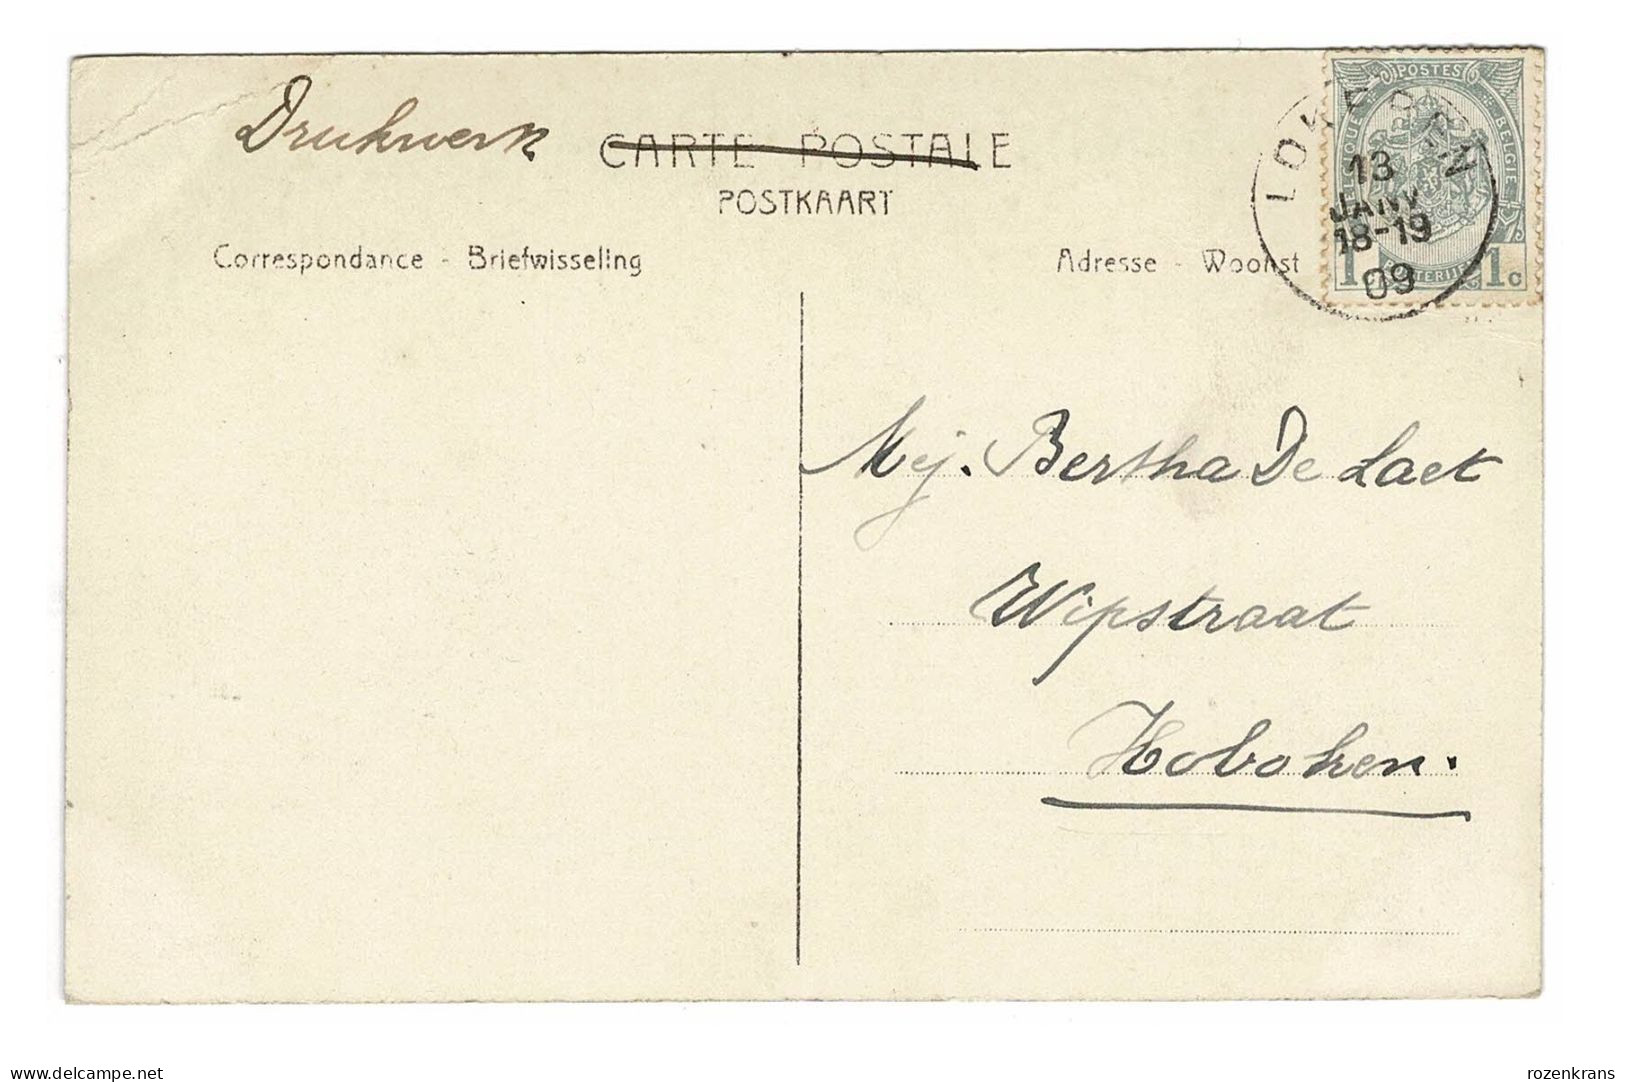 Drukwerk
CARTE POSTALE
POSTKAART
Correspondance - Briefwisseling
Adresse - Woonst
POSTES
BELGIQUE BELGIE
POSTERIJEN
1c 1c
LOKEREN
13
JANV
18-19
09
Mej. Bertha De Laet
Wipstraat
Hoboken.
delcampe.net
rozenkrans